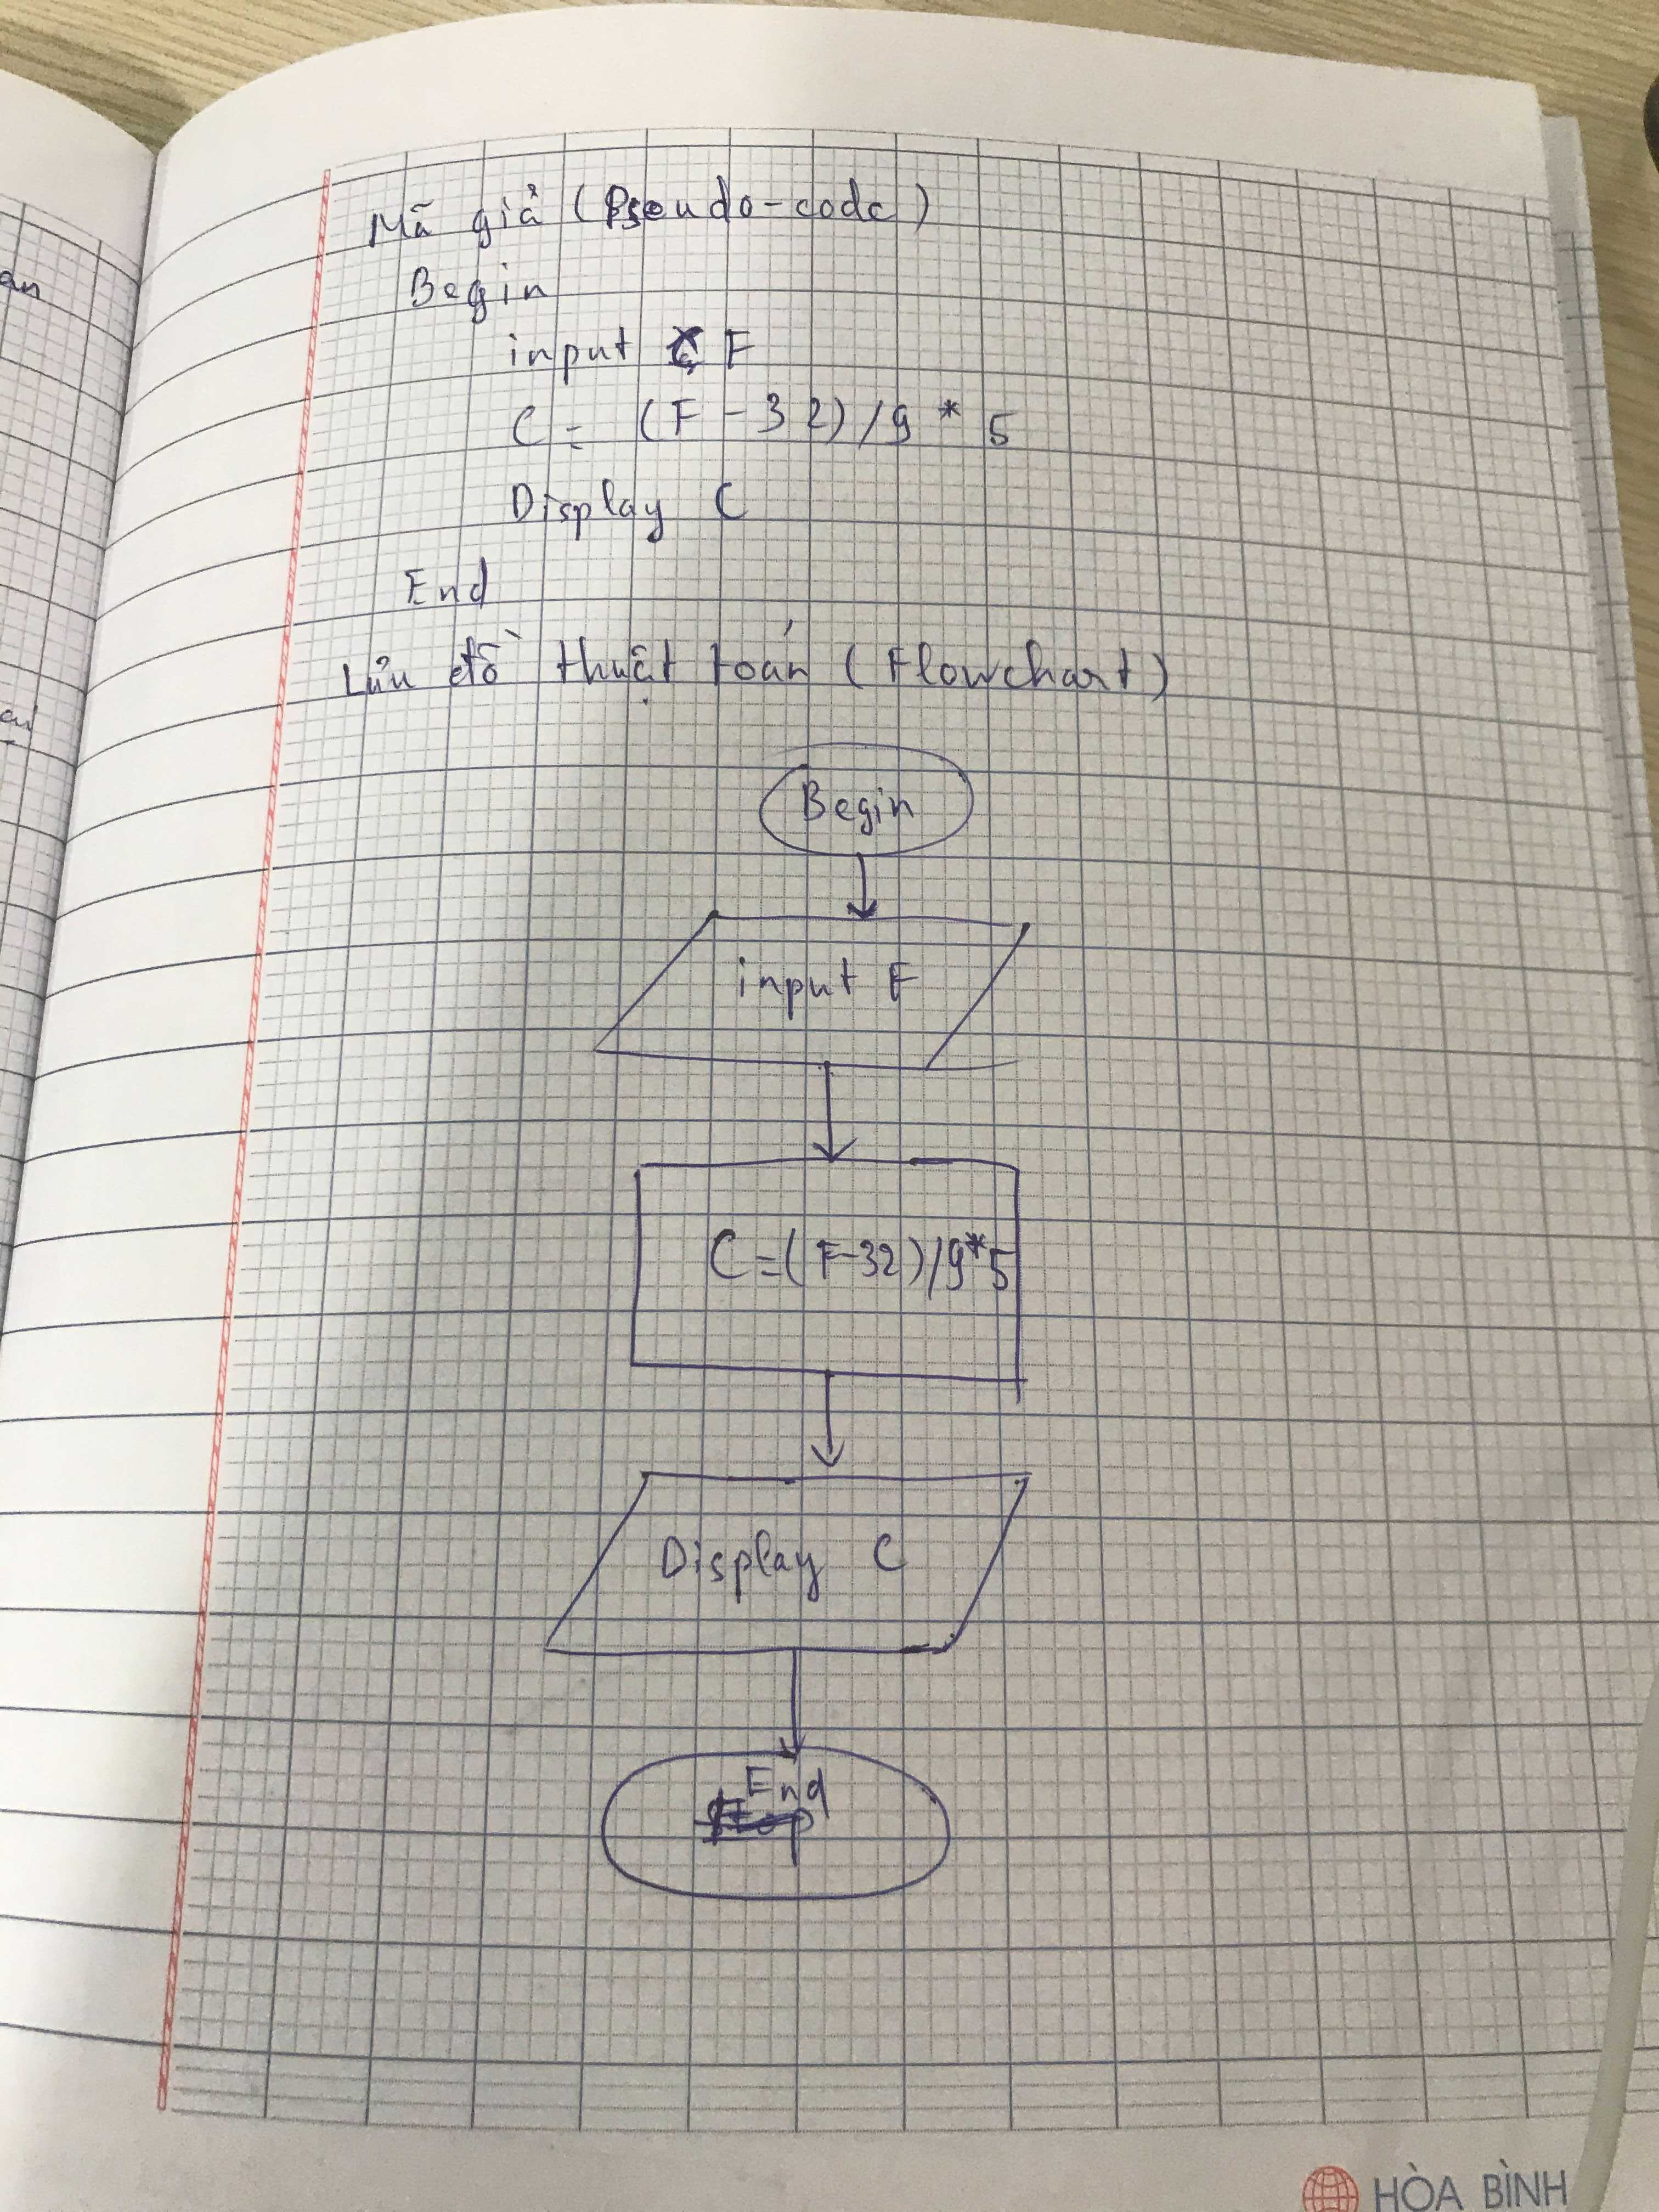 Mã giả (Pseudo-code)
Begin
input F
C = (F - 32) / 9 * 5
Display C
End
Lưu đồ thuật toán (Flowchart)
Begin
input F
C = (F-32)/9*5
Display C
End
HÒA BÌNH